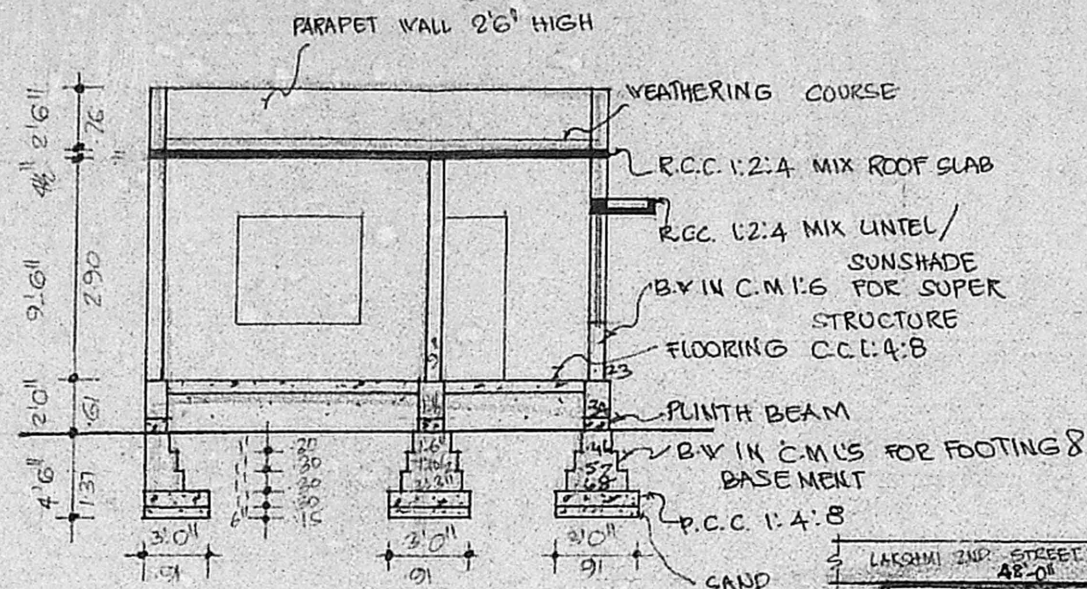 PARAPET WALL 2'6" HIGH
WEATHERING COURSE
R.C.C. 1:2:4 MIX ROOF SLAB
R.C.C. 1:2:4 MIX LINTEL/
SUNSHADE
B.W IN C.M 1:6 FOR SUPER
STRUCTURE
FLOORING C.C 1:4:8
PLINTH BEAM
B.W IN C.M 1:5 FOR FOOTING &
BASEMENT
P.C.C. 1:4:8
SAND
2'6"
.76
4½"
9'6"
2.90
2'0"
.61
4'6"
1.37
9"
23
.30
.30
.30
6"
.15
3'0"
.91
3'0"
.91
3'0"
.91
LAKSHMI 2ND STREET
48'-0"